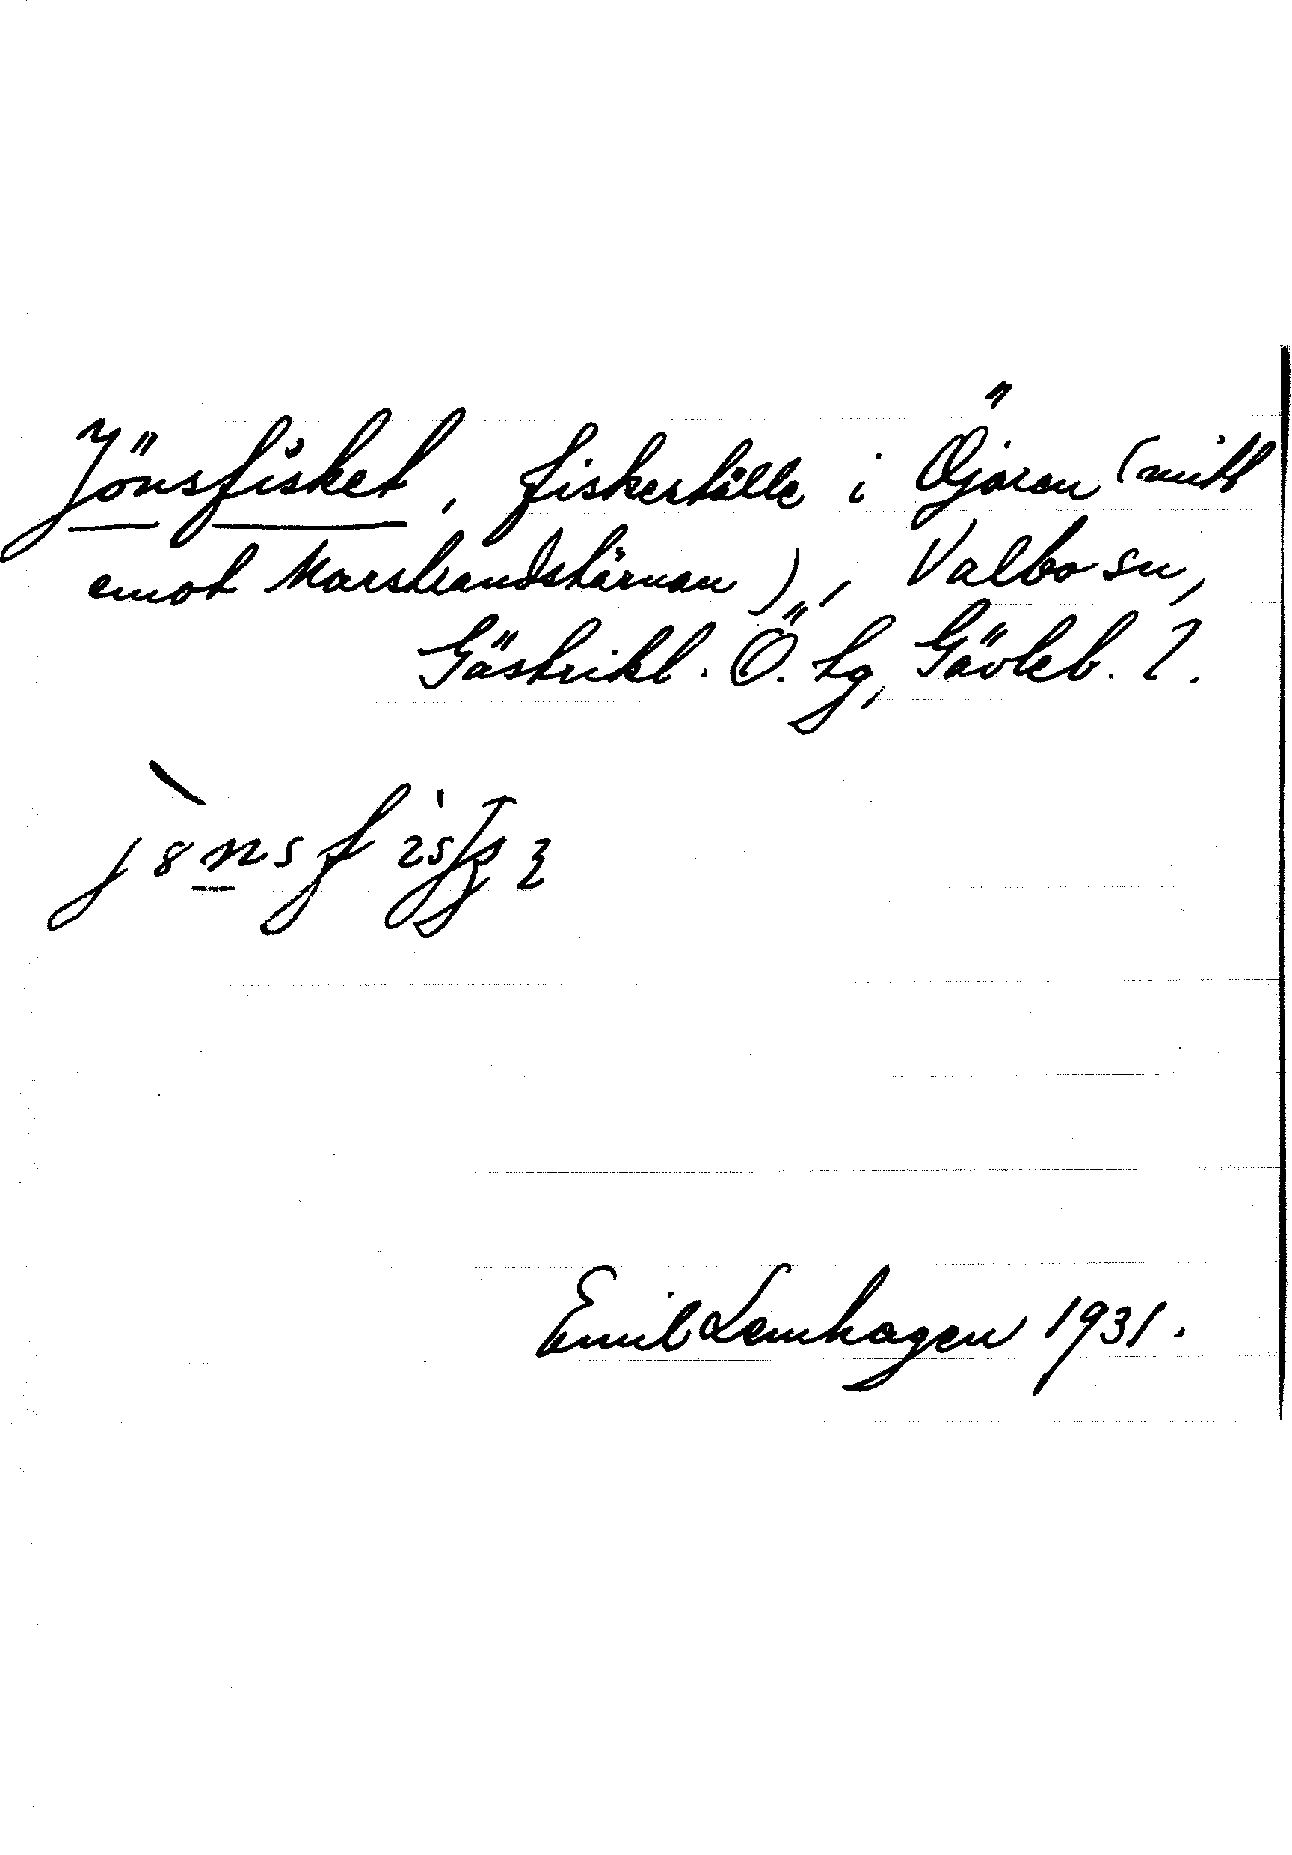 Jönsfisket, fiskeställe i Öjaren (mitt
emot Marstrandstärnan), Valbo sn,
Gästrikl. Ö. tg, Gävleb. l.
Emil Lemhagen 1931.